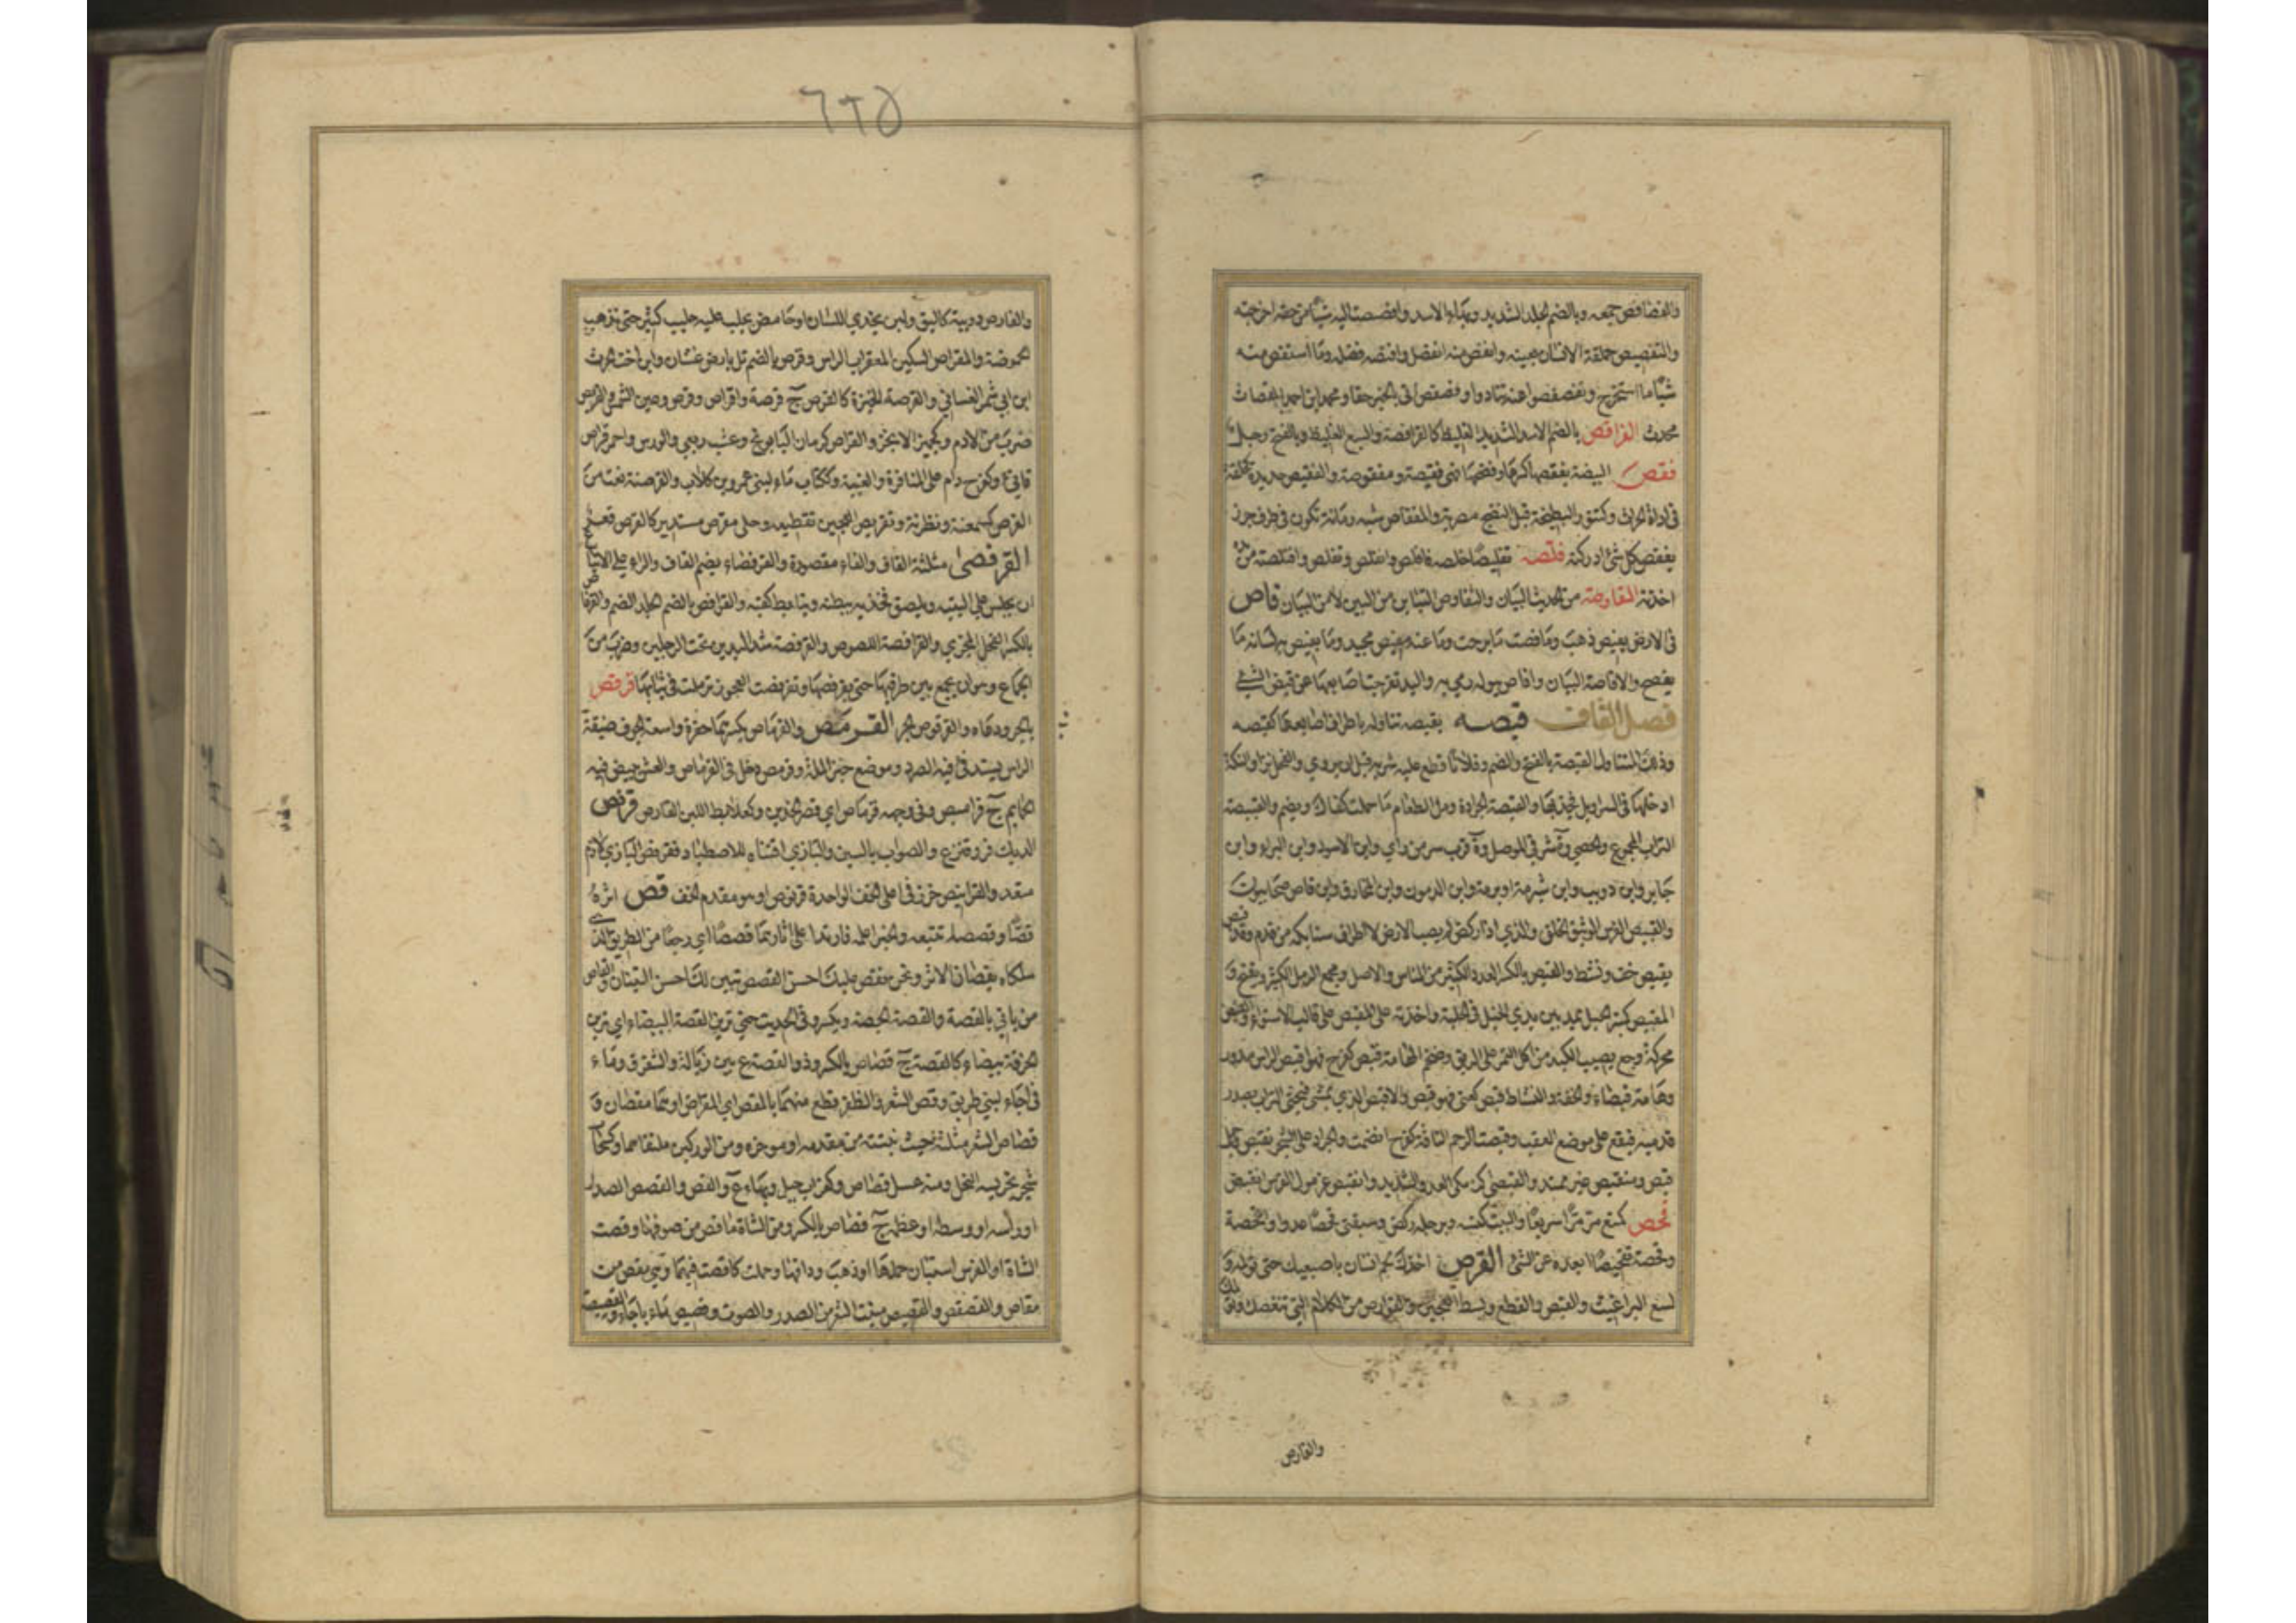 والفصافص جمعه وبالضم الجلد الشديد وبهاء الاسد وافصصت اليه شيئا من حقه اخرجته
والتفصيص حملقة الانسان بعينه وانفص منه انفصل وافتصه فصله وما استفص منه
شيئا ما استخرج وتفصفصوا عنه تنادوا وفصفص اتى بالخبر حقا ومحمد ابن احمد الفصاص
محدث الفرافص بالضم الاسد الشديد الغليظ كالفرافصة والسبع الغليظ وبالفتح رجل
فقص البيضة يفقصها كسرها وفضخها فهي فقيصة ومفقوصة والفقيص حديدة كحلقة
في اداة الحراث وكتنور البطيخة قبل النضج مصرية والمفقاص شبه رمانة تكون في طرف جرز
يفقص كل شئ ادركته فلصه تفليصا خلصه فافلص وانفلص وتفلص وافتلصته من يده
اخذته المفاوصة من الحديث البيان والتفاوص التباين من البين لا من البيان فاص
في الارض يفيص ذهب وما فصت ما برحت وما عنه مفيص محيد وما يفيص به لسانه ما
يفصح والافاصة البيان وافاص ببوله رمى به واليد تفرجت اصابعها عن قبض الشئ
فصل القاف قبصه يقبصه تناوله باطراف اصابعه كقبصه
وذلك المتناول القبصة بالفتح والضم وفلانا قطع عليه شربه قبل ان يروى والفحل نزا والتكة
ادخلها في السراويل فجذبها والقبصة الجرادة ومن الطعام ما حملت كفاك ويضم والقبيصة
التراب المجموع والحصى وة شرقي الموصل وة قرب سر من راى وابن الاسود وابن البراء وابن
جابر وابن ذويب وابن شبرمة او برمة وابن الدمون وابن المخارق وابن وقاص صحابيون
والقبيص الفرس الوثيق الخلق والذي اذا ركض لم يصب الارض الا اطراف سنابكه من قدم وقد قبص
يقبص خف ونشط والقبص بالكسر العدد الكثير من الناس والاصل ومجمع الرمل الكثير ويفتح و
المقبص كمنبر الحبل يمد بين يدي الخيل في الحلبة واخذته على المقبص على قالب الاستواء والقبص
محركة وجع يصيب الكبد من اكل التمر على الريق وضخم الهامة قبص كفرح فهو اقبص الراس مدور
وهامة قبصاء والخفة والنشاط قبص كعني فهو قبص والاقبص الذي يمشي فيحثي التراب بصدر
قدميه فيقع على موضع العقب وقبصت الرحم الناقة كفرح انضمت والجراد على الشجر تقبص وحبل
قبص ومتقبص غير ممتد والقبصى كزمكى العدو الشديد وانقبص غرمول الفرس انقبض
قحص كمنع مر مرا سريعا والبيت كنسه وبرجله ركض وسبقني قحصا عدوا واقحصه
وقحصه تقحيصا ابعده عن الشئ القرص اخذك لحم انسان باصبعيك حتى تؤلمه و
لسع البراغيث والقبض والقطع وبسط العجين والقوارص من الكلام التي تنغصك وتؤلمك
والقارص
٦٢٥
والقارص دويبة كالبق ولبن يحذي اللسان او حامض يحلب عليه حليب كثير حتى تذهب
الحموضة والمقراص السكين المعقرب الراس وقرص بالضم تل بارض غسان وابن اخت الحرث
ابن ابي شمر الغساني والقرصة الخبزة كالقرص ج قرصة واقراص وقرص وعين الشمس والقريص
ضرب من الادم وكجميز الانجز والقراص كرمان البابونج وعشب ربعي والورس واحمر قراص
قانئ وكفرح دام على المنافرة والغيبة وككتاب ماء لبني عمرو بن كلاب والقرصنة نعت من
القرص كسمعنة ونظرنة وتقريص العجين تقطيعه وحلي مقرص مستدير كالقرص قعد
القرفصى مثلثة القاف والفاء مقصورة والقرفصاء بضم القاف والراء على الاتباع
ان يجلس على اليتيه ويلصق فخذيه ببطنه ويتابط كفيه والقرافص بالضم الجلد الضخم والقرفاص
بالكسر الفحل المجزئ والقرافصة اللصوص والقرفصة شد اليدين تحت الرجلين وضرب من
الجماع وهو ان يجمع بين طرفيها حتى يقرفصها وتقرفصت العجوز تزملت في ثيابها قرقص
بالجرو دعاه والقرقوص الجرو القرمص والقرماص بكسرهما حفرة واسعة الجوف ضيقة
الراس يستدفئ فيها الصرد وموضع خبز الملة وقرمص دخل في القرماص والعش يبيض فيه
الحمام ج قراميص وفي وجهه قرماص اي قصر الخدين وكعلابط اللبن القارص قرنص
الديك فر وقنزع والصواب بالسين والبازي اقتناه للاصطياد فقرنص البازي لازم
متعد والقرانيص خرز في اعلى الخف الواحدة قرنوص او هو مقدم الخف قص اثره
قصا وقصصا تتبعه والخبر اعلمه فارتدا على آثارهما قصصا اي رجعا من الطريق الذي
سلكاه يقصان الاثر ونحن نقص عليك احسن القصص نبين لك احسن التبيان والقاص
من ياتي بالقصة والقصة الجصة ويكسر وفي الحديث حتى ترين القصة البيضاء اي ترين
الخرقة بيضاء كالقصة ج قصاص بالكسر وذو القصة ع بين زبالة والشقوق وماء
في اجاء لبني طريف وقص الشعر والظفر قطع منهما بالمقص اي المقراض وهما مقصان و
قصاص الشعر مثلثة حيث نبتته من مقدمه او موخره ومن الوركين ملتقاهما وكسحاب
شجر تجرسه النحل ومنه عسل قصاص وكغراب جبل وبهاء ع والقص والقصص الصدر
او راسه او وسطه او عظمه ج قصاص بالكسر ومن الشاة ما قص من صوفها وقصت
الشاة او الفرس استبان حملها او ذهب وداقها وحملت كاقصت فيهما وهي مقص من
مقاص والقصقص والقصيص منبت الشعر من الصدر والصوت وقصيص ماء باجاء والقصيصة